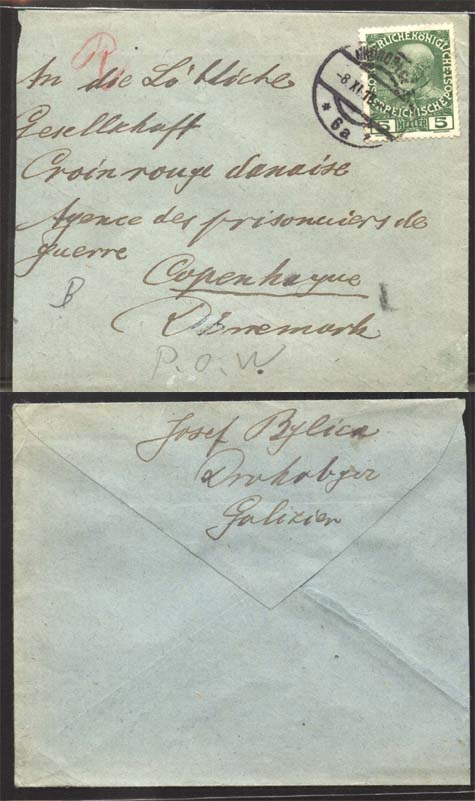 R.
KAISERLICHE KÖNIGLICHE
ÖSTERREICHISCHE
5 HELLER 5
-8.XI.15
* 6a *
An die Löbliche
Gesellschaft
Croin rouge danaise
Agence des prisonniers de
guerre
Copenhague
Dännemark
B
P.O.W.
Josef Bylica
Drohobycz
Galizien